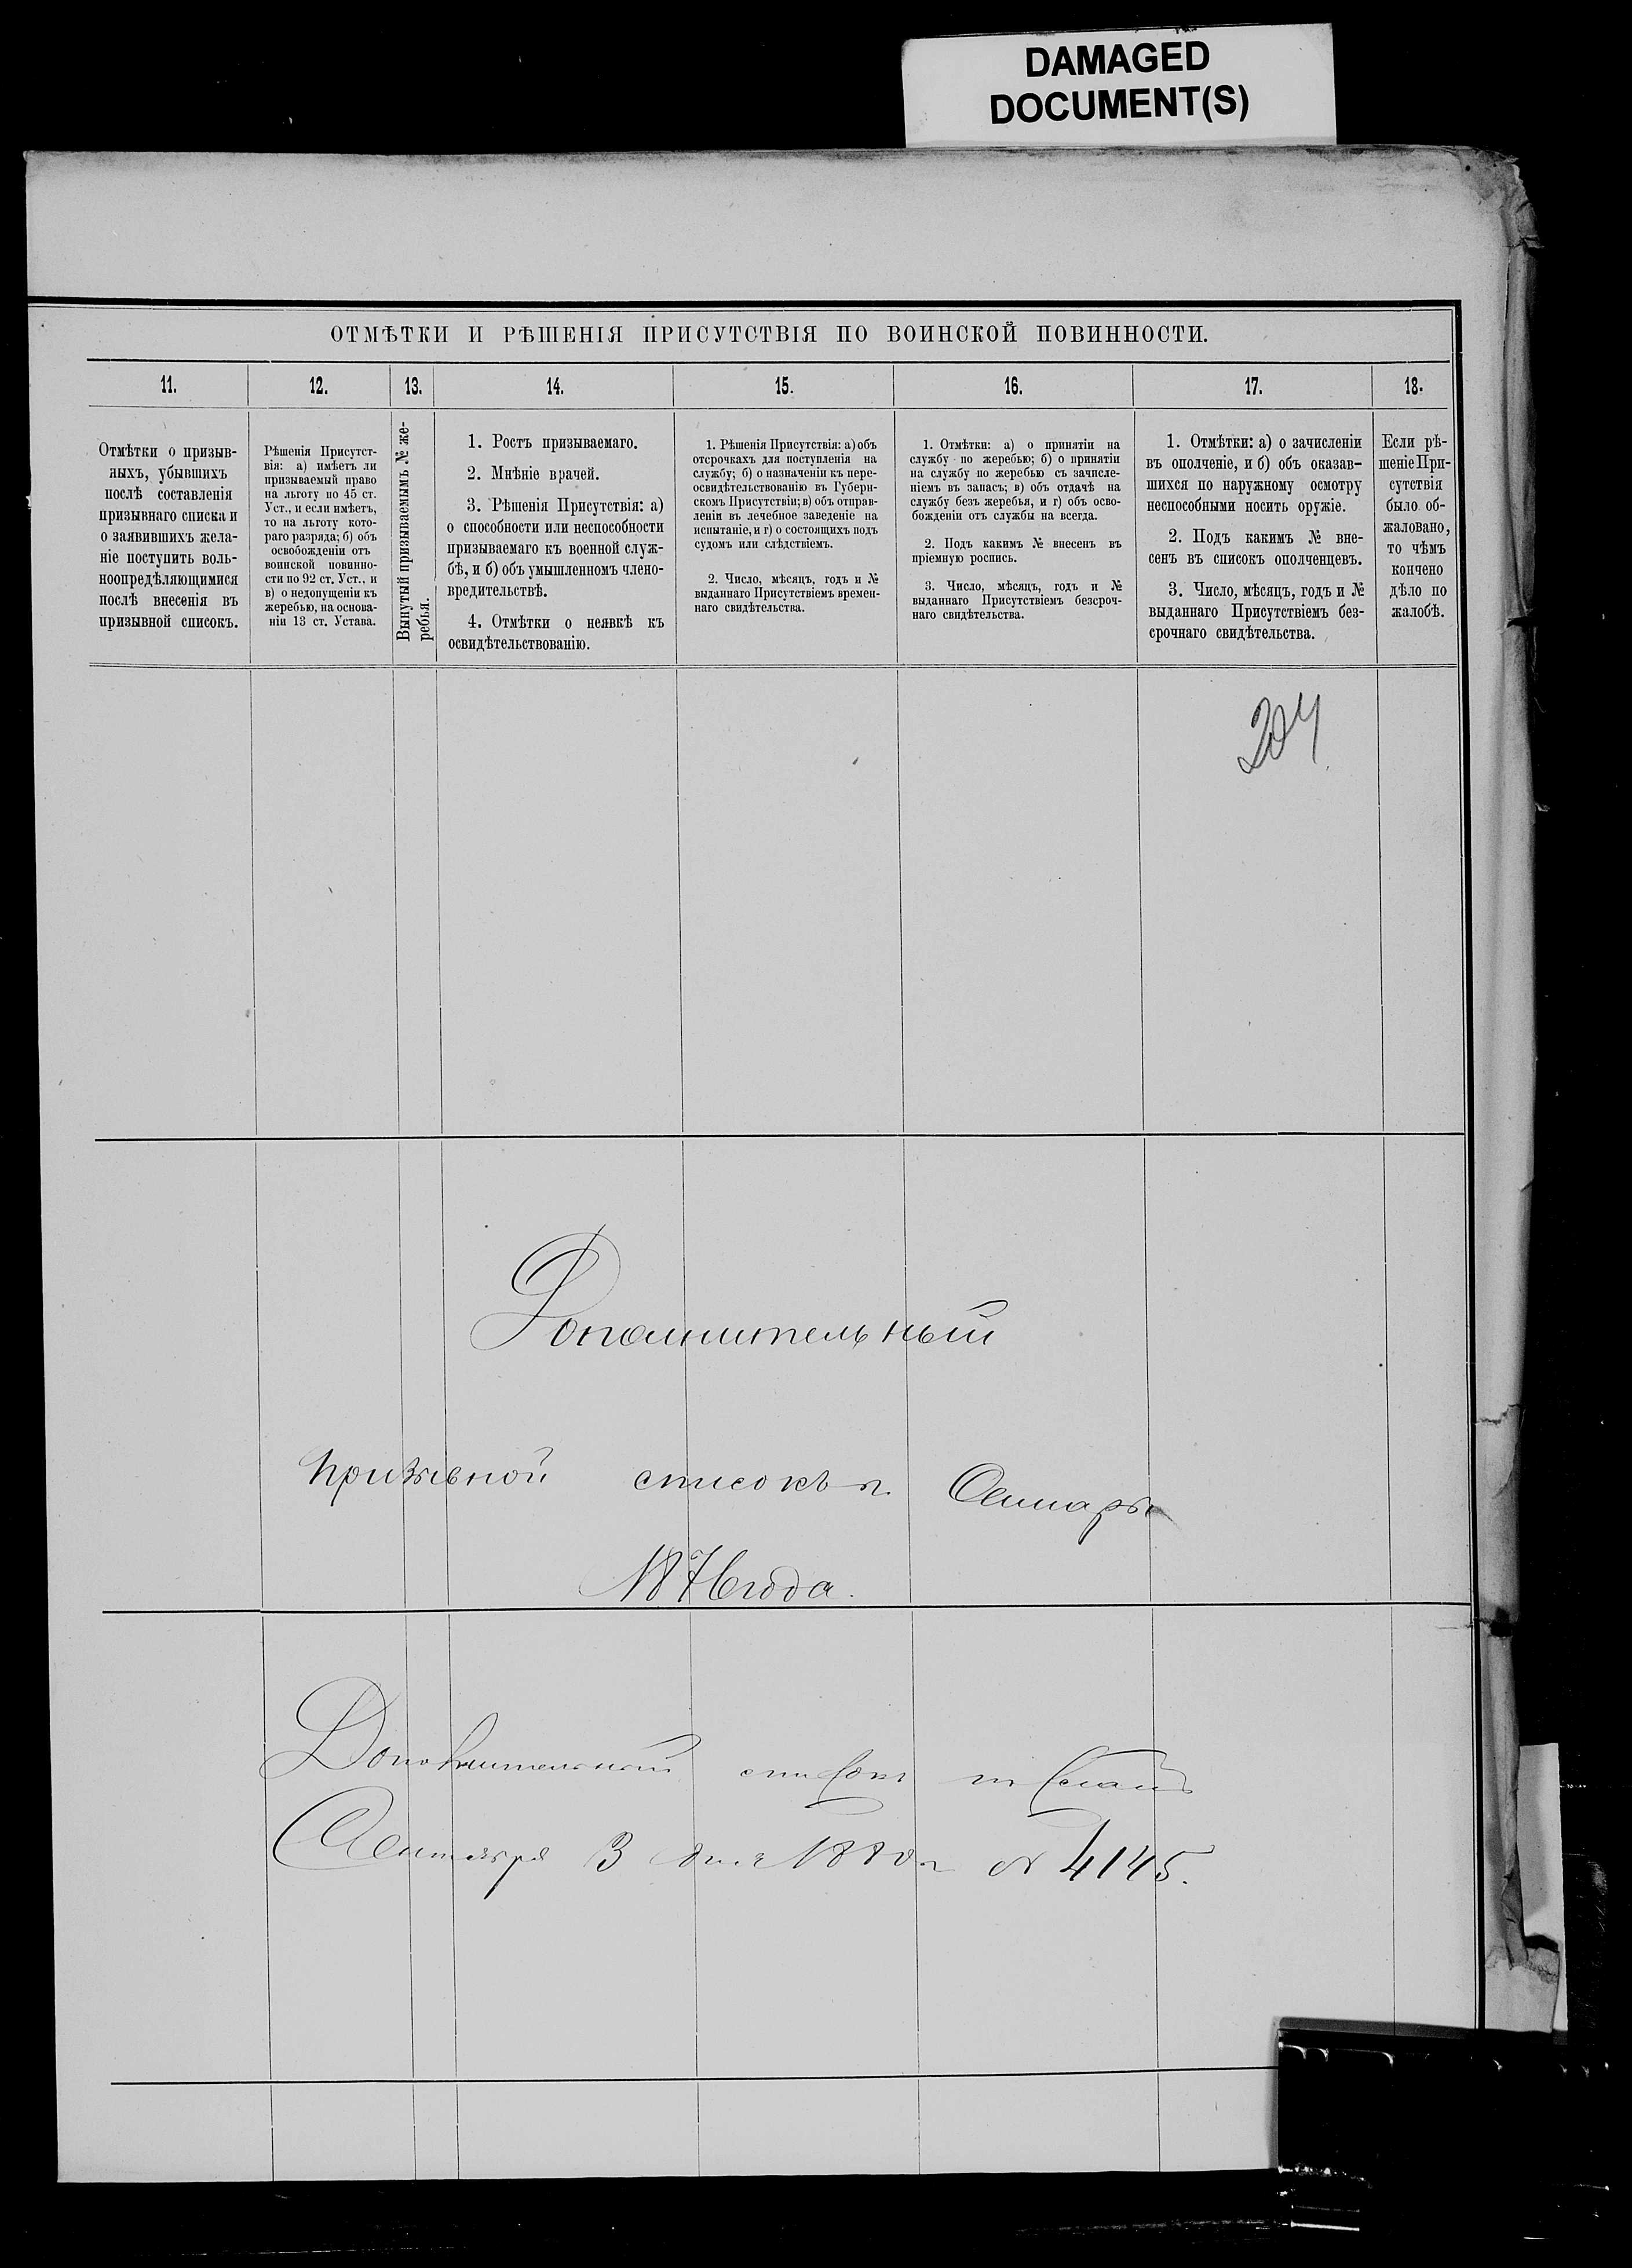 DAMAGED
DOCUMENT(S)
ОТМѢТКИ И РѢШЕНІЯ ПРИСУТСТВІЯ ПО ВОИНСКОЙ ПОВИННОСТИ.
11.
12.
13.
14.
15.
16.
17.
18.
Отмѣтки о призыв-
ныхъ, убывшихъ
послѣ составленія
призывнаго списка и
о заявившихъ жела-
ніе поступить воль-
ноопредѣляющимися
послѣ внесенія въ
призывной списокъ.
Рѣшенія Присутст-
вія: а) имѣетъ ли
призываемый право
на льготу по 45 ст.
Уст., и если имѣетъ,
то на льготу кото-
раго разряда; б) объ
освобожденіи отъ
воинской повинно-
сти по 92 ст. Уст., и
в) о недопущеніи къ
жеребью, на основа-
ніи 13 ст. Устава.
Вынутый призываемымъ № же-
ребья.
1. Ростъ призываемаго.
2. Мнѣніе врачей.
3. Рѣшенія Присутствія: а)
о способности или неспособности
призываемаго къ военной служ-
бѣ, и б) объ умышленномъ члено-
вредительствѣ.
4. Отмѣтки о неявкѣ къ
освидѣтельствованію.
1. Рѣшенія Присутствія: а) объ
отсрочкахъ для поступленія на
службу; б) о назначеніи къ пере-
освидѣтельствованію въ Губерн-
скомъ Присутствіи; в) объ отправ-
леніи въ лечебное заведеніе на
испытаніе, и г) о состоящихъ подъ
судомъ или слѣдствіемъ.
2. Число, мѣсяцъ, годъ и №
выданнаго Присутствіемъ времен-
наго свидѣтельства.
1. Отмѣтки: а) о принятіи на
службу по жеребью; б) о принятіи
на службу по жеребью съ зачисле-
ніемъ въ запасъ; в) объ отдачѣ на
службу безъ жеребья, и г) объ осво-
божденіи отъ службы на всегда.
2. Подъ какимъ № внесенъ въ
пріемную роспись.
3. Число, мѣсяцъ, годъ и №
выданнаго Присутствіемъ безсроч-
наго свидѣтельства.
1. Отмѣтки: а) о зачисленіи
въ ополченіе, и б) объ оказав-
шихся по наружному осмотру
неспособными носить оружіе.
2. Подъ какимъ № вне-
сенъ въ списокъ ополченцевъ.
3. Число, мѣсяцъ, годъ и №
выданнаго Присутствіемъ без-
срочнаго свидѣтельства.
Если рѣ-
шеніе При-
сутствія
было об-
жаловано,
то чѣмъ
кончено
дѣло по
жалобѣ.
204
Дополнительный
призывной списокъ г. Самары
1876 года.
Дополнительный списокъ
Сентября 3 дня 1880 г № 4145.